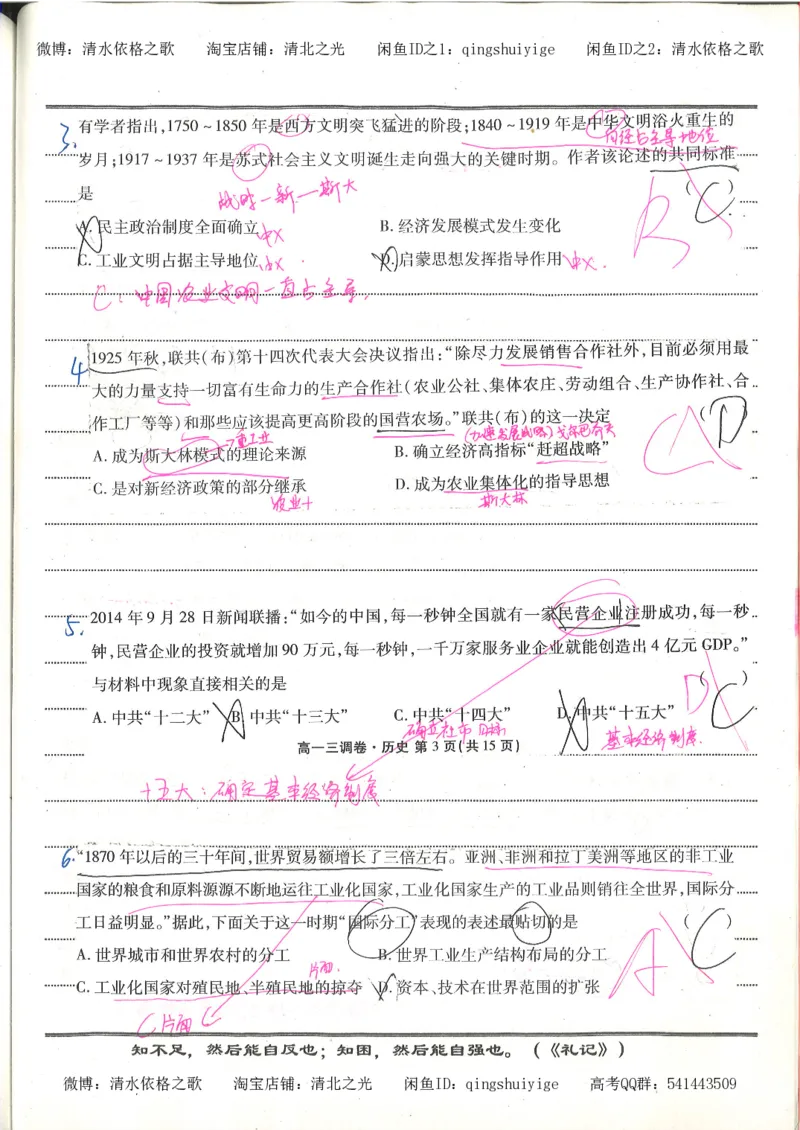 微博：清水依格之歌 淘宝店铺：清北之光 闲鱼ID之1：qingshuiyige 闲鱼ID之2：清水依格之歌
3. 有学者指出,1750～1850年是西方文明突飞猛进的阶段;1840～1919年是中华文明浴火重生的
内经占主导地位
岁月;1917～1937年是苏式社会主义文明诞生走向强大的关键时期。作者该论述的共同标准
是 战时—新—斯大 (C) B
A. 民主政治制度全面确立 中X B. 经济发展模式发生变化
C. 工业文明占据主导地位 中X D. 启蒙思想发挥指导作用 中X
C：中国农业文明一直占主导。
4 1925年秋,联共(布)第十四次代表大会决议指出:“除尽力发展销售合作社外,目前必须用最
大的力量支持一切富有生命力的生产合作社(农业公社、集体农庄、劳动组合、生产协作社、合
作工厂等等)和那些应该提高更高阶段的国营农场。”联共(布)的这一决定 (D) C
重工业 (加速发展战略)戈尔巴乔夫
A. 成为斯大林模式的理论来源 B. 确立经济高指标“赶超战略”
C. 是对新经济政策的部分继承 D. 成为农业集体化的指导思想
农业+ 斯大林
5. 2014年9月28日新闻联播:“如今的中国,每一秒钟全国就有一家民营企业注册成功,每一秒
钟,民营企业的投资就增加90万元,每一秒钟,一千万家服务业企业就能创造出4亿元GDP。”
与材料中现象直接相关的是 D (C)
A. 中共“十二大” B. 中共“十三大” C. 中共“十四大” D. 中共“十五大”
确立社市目标 基本经济制度
高一三调卷·历史 第3页(共15页)
十五大：确定基本经济制度
6. “1870年以后的三十年间,世界贸易额增长了三倍左右。亚洲、非洲和拉丁美洲等地区的非工业
国家的粮食和原料源源不断地运往工业化国家,工业化国家生产的工业品则销往全世界,国际分
工日益明显。”据此,下面关于这一时期“国际分工”表现的表述最贴切的是 (C) A
A. 世界城市和世界农村的分工 B. 世界工业生产结构布局的分工
片面.
C. 工业化国家对殖民地、半殖民地的掠夺 D. 资本、技术在世界范围的扩张
C片面
知不足，然后能自反也；知困，然后能自强也。（《礼记》）
微博：清水依格之歌 淘宝店铺：清北之光 闲鱼ID：qingshuiyige 高考QQ群：541443509